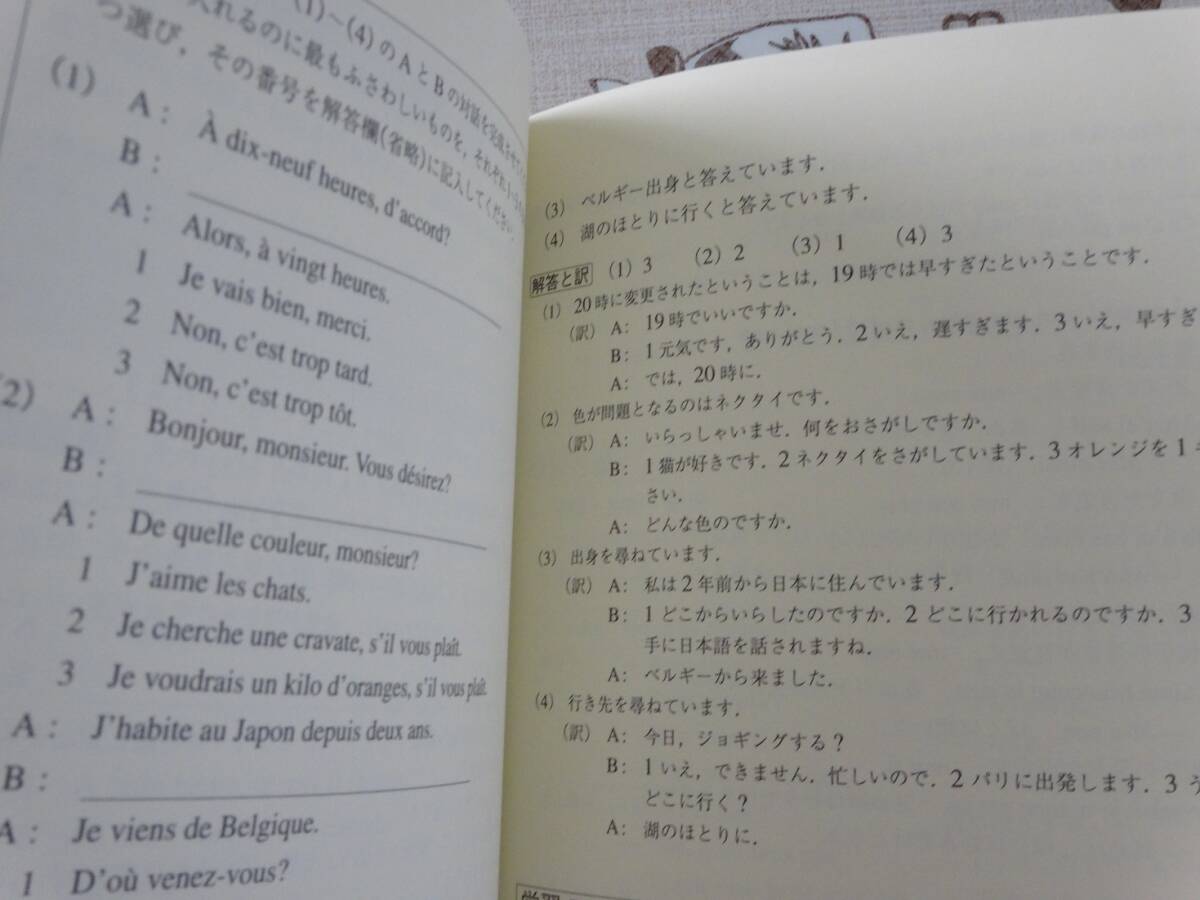 (1)~(4)のAとBの対話を完成させて
入れるのに最もふさわしいものを，それぞれ
つ選び，その番号を解答欄(省略)に記入してください．
(1) A： À dix-neuf heures, d'accord?
B：
A： Alors, à vingt heures.
1 Je vais bien, merci.
2 Non, c'est trop tard.
3 Non, c'est trop tôt.
2) A： Bonjour, monsieur. Vous désirez?
B：
A： De quelle couleur, monsieur?
1 J'aime les chats.
2 Je cherche une cravate, s'il vous plaît.
3 Je voudrais un kilo d'oranges, s'il vous plaît.
A： J'habite au Japon depuis deux ans.
B：
A： Je viens de Belgique.
1 D'où venez-vous?
(3) ベルギー出身と答えています．
(4) 湖のほとりに行くと答えています．
解答と訳 (1) 3 (2) 2 (3) 1 (4) 3
(1) 20時に変更されたということは，19時では早すぎたということです．
(訳) A： 19時でいいですか．
B： 1元気です，ありがとう．2いえ，遅すぎます．3いえ，早すぎ
A： では，20時に．
(2) 色が問題となるのはネクタイです．
(訳) A： いらっしゃいませ．何をおさがしですか．
B： 1猫が好きです．2ネクタイをさがしています．3オレンジを1
さい．
A： どんな色のですか．
(3) 出身を尋ねています．
(訳) A： 私は2年前から日本に住んでいます．
B： 1どこからいらしたのですか．2どこに行かれるのですか．3
手に日本語を話されますね．
A： ベルギーから来ました．
(4) 行き先を尋ねています．
(訳) A： 今日，ジョギングする？
B： 1いえ，できません．忙しいので．2パリに出発します．3う
どこに行く？
A： 湖のほとりに．